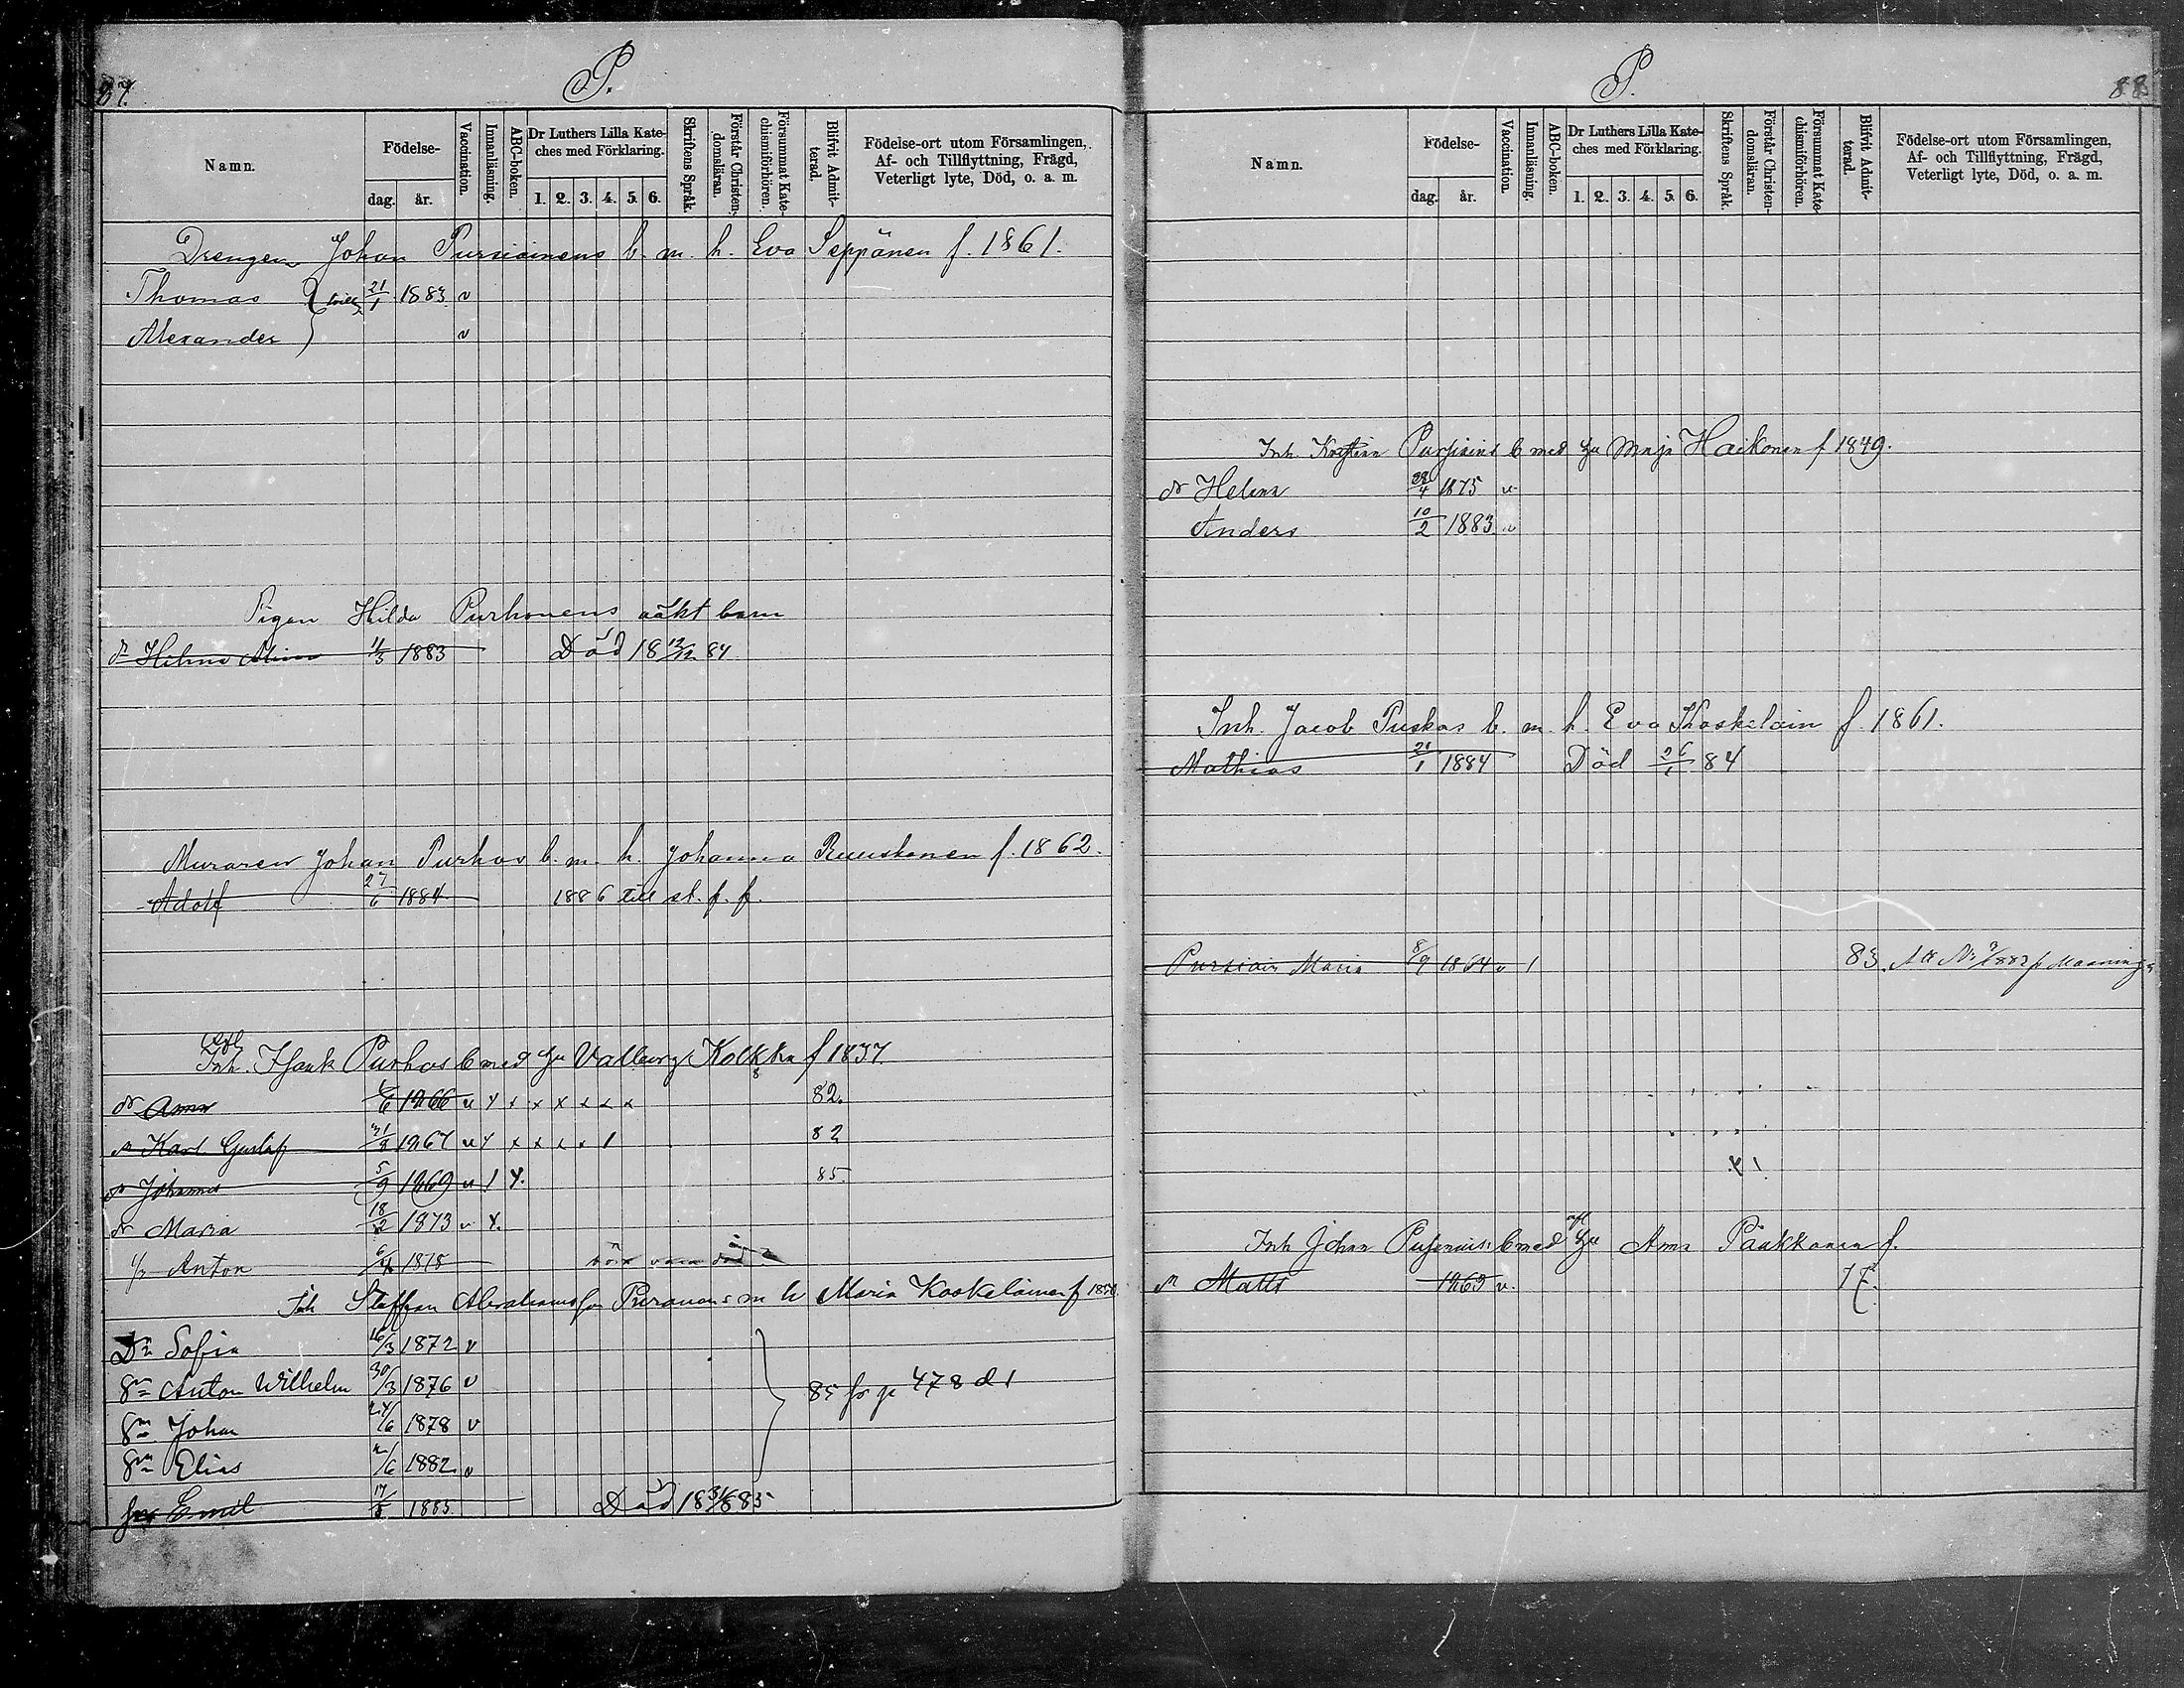 87.
P.
Namn.
Födelse-
dag.
år.
Vaccination.
Innanläsning.
ABC-boken.
Dr Luthers Lilla Kate-
ches med Förklaring.
1. 2. 3. 4. 5. 6.
Skriftens Språk.
Förstår Christen-
domsläran.
Försummat Kate-
chismiförhören.
Blifvit Admit-
terad.
Födelse-ort utom Församlingen,
Af- och Tillflyttning, Frägd,
Veterligt lyte, Död, o. a. m.
Drengen Johan Pursiainens b. m. h. Eva Seppänen f. 1861.
Thomas 21/1 1883 v
Alexander v
Pigan Hilda Purhonens oäkt barn
dr Hilma 11/3 1883 Död 18 12/12 84
Muraren Johan Purhos b. m. h. Johanna Ruuskanen f. 1862.
Adolf 27/6 1884 1886 till st. f. f.
Inh. Isaak Purhos b med hu Valborg Kolkka f 1837.
dr Anna 1866 82.
Karl Gustaf 1867 82
Johannes 5/9 1869 85.
dr Maria 18/2 1873 v
Anton 1878 bör vara död
Inh Staffan Abrahamsson Puranens m h Maria Koskelainen f
Dr Sofia 16/3 1872 v
Sn Anton Wilhelm 30/3 1876 v
85 fr p 478 d 1
Sn Johan 24/6 1878 v
Sn Elias 1882 v
Emil 17/5 1885. Död 18 85
P.
88
Namn.
Födelse-
dag.
år.
Vaccination.
Innanläsning.
ABC-boken.
Dr Luthers Lilla Kate-
ches med Förklaring.
1. 2. 3. 4. 5. 6.
Skriftens Språk.
Förstår Christen-
domsläran.
Försummat Kate-
chismiförhören.
Blifvit Admit-
terad.
Födelse-ort utom Församlingen,
Af- och Tillflyttning, Frägd,
Veterligt lyte, Död, o. a. m.
Inh. b med hu Maja Haikonen f 1849.
dr Helena 1875 v
Anders 10/2 1883 v
Inh. Jacob Puskas b. m. h. Eva Koskelain f. 1861.
Mathias 21/1 1884 Död 26/1 84
Pursiain Maria 8/9 1864 v 1 83.
Inh Johan b med hu Anna Pänkkänen f.
Matts 1869 v.